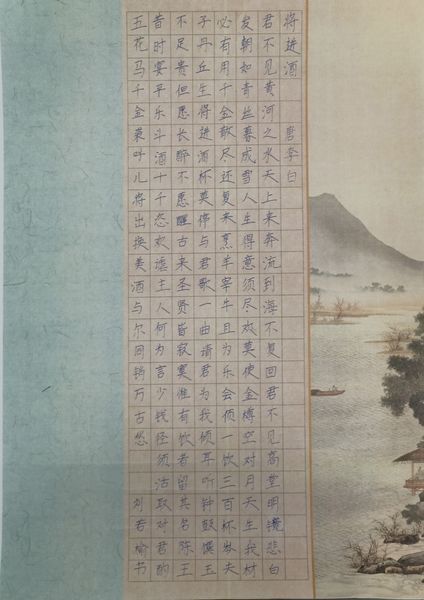 将进酒 唐李白
君不见黄河之水天上来奔流到海不复回君不见高堂明镜悲白
发朝如青丝暮成雪人生得意须尽欢莫使金樽空对月天生我材
必有用千金散尽还复来烹羊宰牛且为乐会倾一饮三百杯岑夫
子丹丘生将进酒杯莫停与君歌一曲请君为我倾耳听钟鼓馔玉
不足贵但愿长醉不愿醒古来圣贤皆寂寞惟有饮者留其名陈王
昔时宴平乐斗酒十千恣欢谑主人何为言少钱径须沽取对君酌
五花马千金裘呼儿将出换美酒与尔同销万古愁 刘若榆书